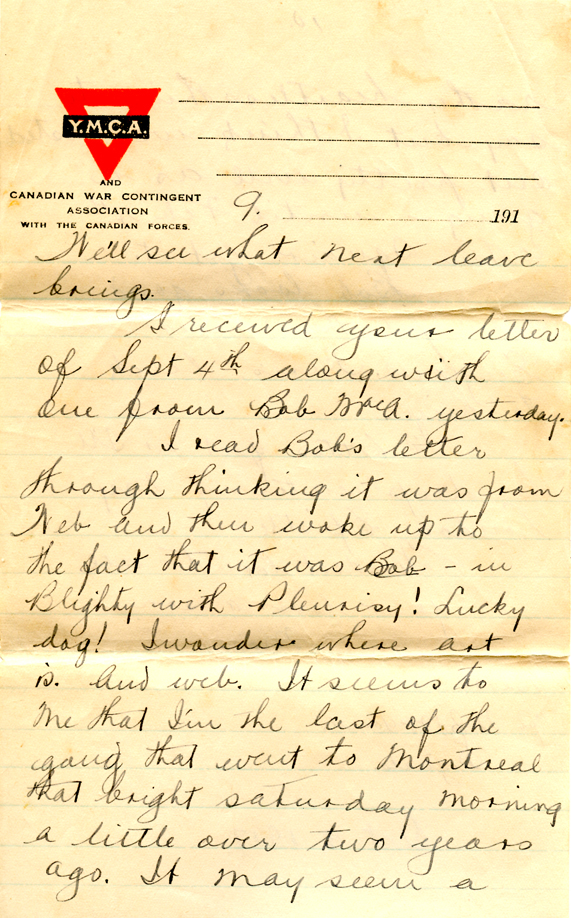 Y.M.C.A.
AND
CANADIAN WAR CONTINGENT
ASSOCIATION
WITH THE CANADIAN FORCES.
9. 191
We'll see what next leave
brings.
I received your letter
of Sept 4th along with
one from Bob McA. yesterday.
I read Bob's letter
through thinking it was from
Neb and then woke up to
the fact that it was Bob - in
Blighty with Pleurisy! Lucky
dog! I wonder where art
is. And web. It seems to
me that I'm the last of the
gang that went to Montreal
that bright saturday morning
a little over two years
ago. It may seem a